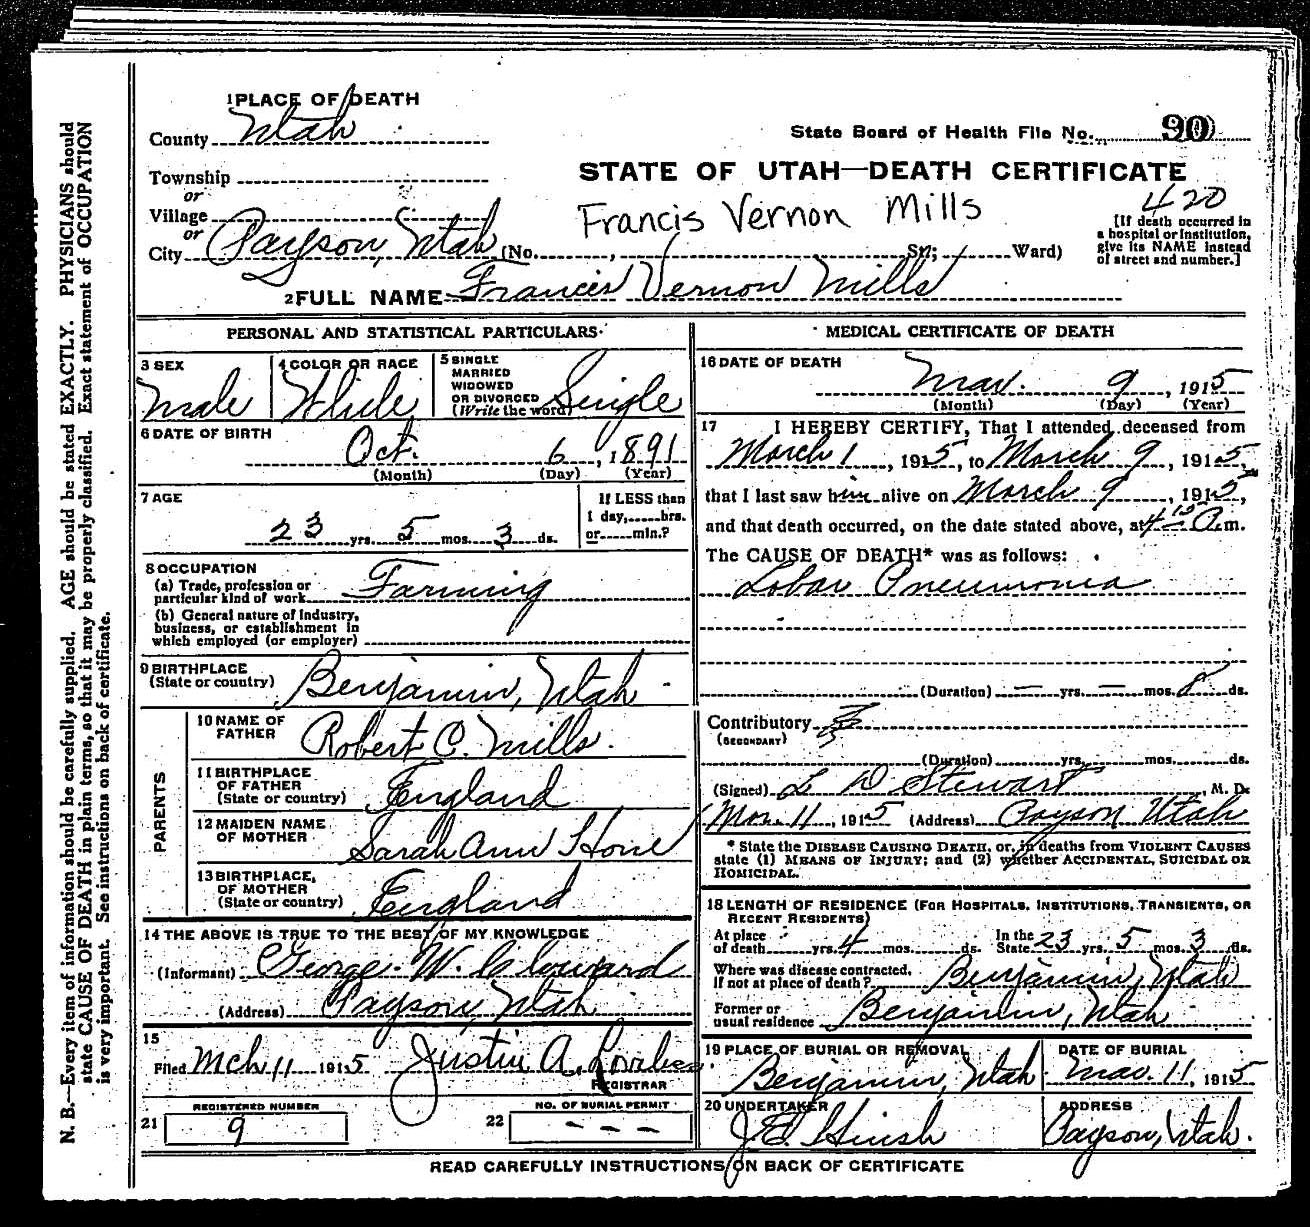 1 PLACE OF DEATH
County Utah
State Board of Health File No. 90
Township
STATE OF UTAH—DEATH CERTIFICATE
or
Village
420
Francis Vernon Mills
[If death occurred in
a hospital or institution,
give its NAME instead
of street and number.]
or
City Payson, Utah (No. , St; Ward)
2 FULL NAME Francis Vernon Mills
PERSONAL AND STATISTICAL PARTICULARS
3 SEX
Male
4 COLOR OR RACE
White
5 SINGLE
MARRIED
WIDOWED
OR DIVORCED
(Write the word)
Single
6 DATE OF BIRTH
Oct. 6, 1891
(Month) (Day) (Year)
7 AGE
23 yrs. 5 mos. 3 ds.
If LESS than
1 day, hrs.
or min.?
8 OCCUPATION
(a) Trade, profession or
particular kind of work Farming
(b) General nature of industry,
business, or establishment in
which employed (or employer)
9 BIRTHPLACE
(State or country) Benjamin, Utah
PARENTS
10 NAME OF
FATHER Robert C. Mills.
11 BIRTHPLACE
OF FATHER
(State or country) England
12 MAIDEN NAME
OF MOTHER Sarah Ann Hone
13 BIRTHPLACE,
OF MOTHER
(State or country) England
14 THE ABOVE IS TRUE TO THE BEST OF MY KNOWLEDGE
(Informant) George W. Cloward
(Address) Payson, Utah
15
Filed Mch 11 1915 Justin A. Loveless
REGISTRAR
REGISTERED NUMBER
21 9
NO. OF BURIAL PERMIT
22 - - -
MEDICAL CERTIFICATE OF DEATH
16 DATE OF DEATH
Mar. 9, 1915
(Month) (Day) (Year)
17 I HEREBY CERTIFY, That I attended deceased from
March 1, 1915, to March 9, 1915,
that I last saw him alive on March 9, 1915,
and that death occurred, on the date stated above, at 4 15 A m.
The CAUSE OF DEATH* was as follows:
Lobar Pneumonia
(Duration) — yrs. — mos. 8 ds.
Contributory
(SECONDARY)
(Duration) yrs. mos. ds.
(Signed) L D Stewart M. D.
Mar. 11, 1915 (Address) Payson Utah
* State the DISEASE CAUSING DEATH, or, in deaths from VIOLENT CAUSES
state (1) MEANS OF INJURY; and (2) whether ACCIDENTAL, SUICIDAL OR
HOMICIDAL.
18 LENGTH OF RESIDENCE (FOR HOSPITALS, INSTITUTIONS, TRANSIENTS, OR
RECENT RESIDENTS)
At place
of death yrs. 4 mos. ds.
In the
State 23 yrs. 5 mos. 3 ds.
Where was disease contracted,
If not at place of death? Benjamin, Utah
Former or
usual residence Benjamin, Utah
19 PLACE OF BURIAL OR REMOVAL
Benjamin, Utah
DATE OF BURIAL
Mar. 11, 1915
20 UNDERTAKER
ADDRESS
Payson, Utah.
READ CAREFULLY INSTRUCTIONS ON BACK OF CERTIFICATE
N. B.—Every item of information should be carefully supplied. AGE should be stated EXACTLY. PHYSICIANS should
state CAUSE OF DEATH in plain terms, so that it may be properly classified. Exact statement of OCCUPATION
is very important. See instructions on back of certificate.